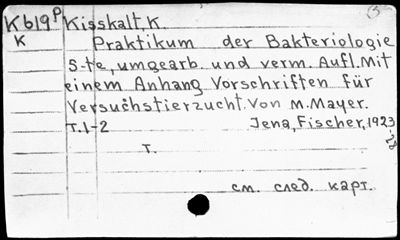 K619P Kisskalt, K
K Praktikum der Bakteriologie
5-te, umgearb. und verm. Aufl. Mit
einem Anhang Vorschriften für
Versuchstierzucht. Von M. Mayer.
T.1-2 Jena, Fischer, 1923
T.
см. след. карт.